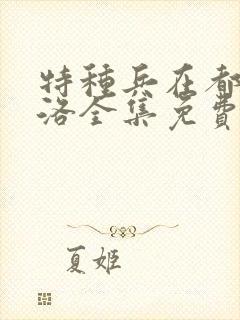 特種兵在都
洛全集免費
夏姬